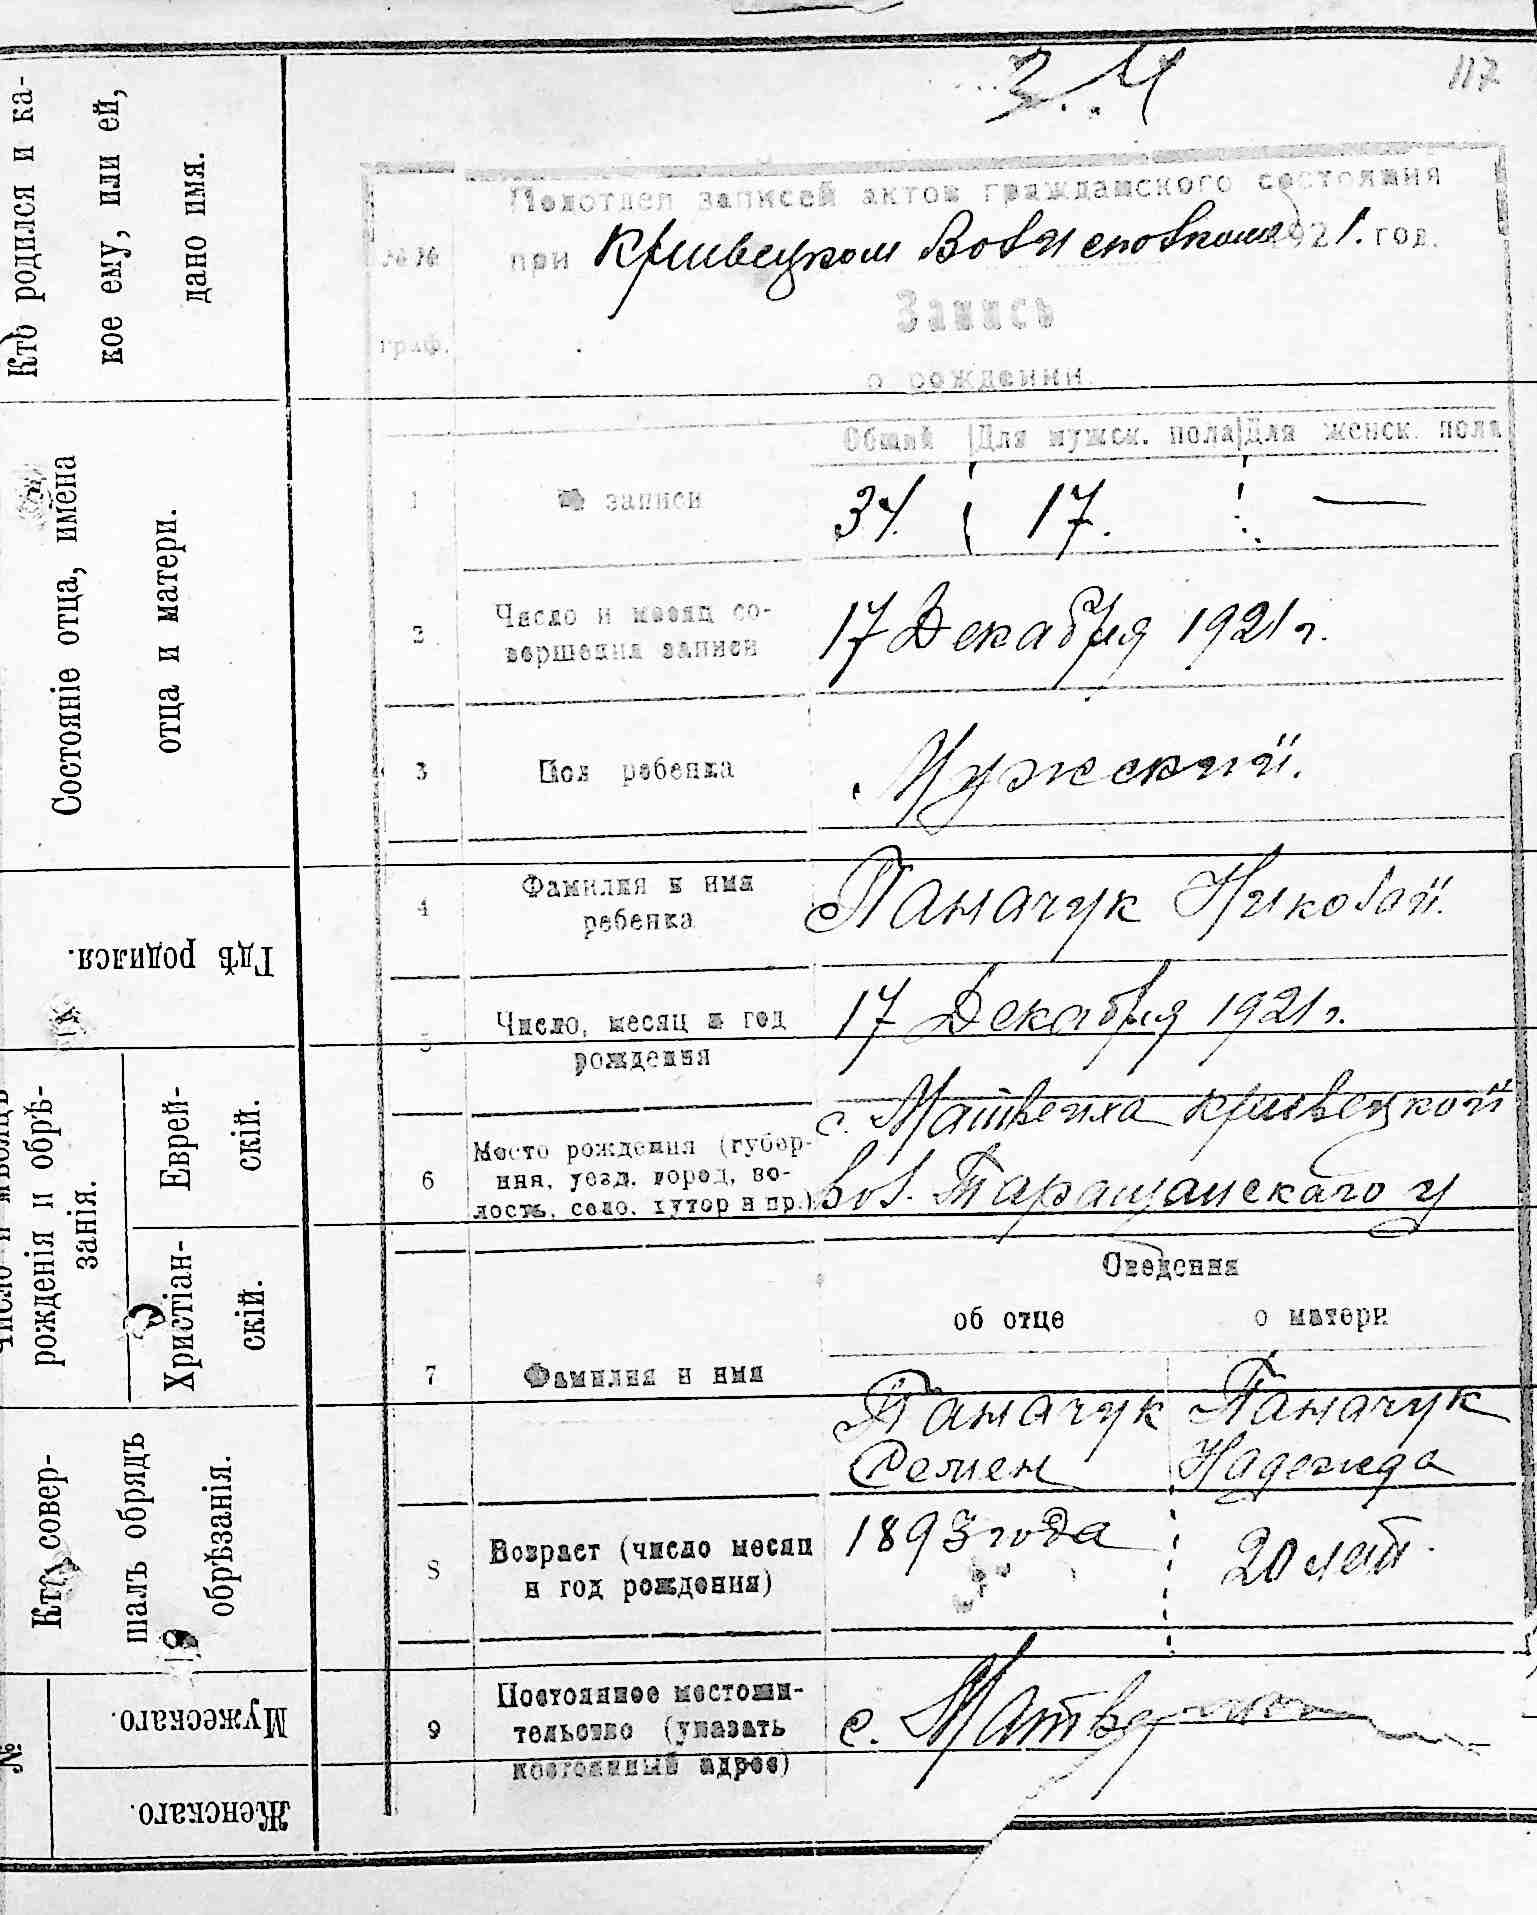 117
З. Ч
Подотдел записей актов гражданского состояния
№ №
при Кривецком Волисполкоме 1921. год.
Запись
граф.
о рождении.
Общий Для мужск. пола Для женск. пола
1 № записи 34. 17. —
2 Число и месяц со-
вершения записи 17 Декабря 1921 г.
3 Пол ребенка Мужский.
4 Фамилия и имя
ребенка Паначук Николай.
5 Число, месяц и год
рождения 17 Декабря 1921 г.
6 Место рождения (губер-
ния, уезд, город, во-
лость, село, хутор и пр.)
с. Матвеиха Кривецкой
вол. Таращанскаго у
Сведения
об отце о матери
7 Фамилия и имя
Паначук Паначук
Семен Надежда
8 Возраст (число месяц
и год рождения)
1893 года 20 лет.
9 Постоянное местожи-
тельство (указать
постоянный адрес)
с.
Кто родился и ка-
кое ему, или ей,
дано имя.
Состояніе отца, имена
отца и матери.
Гдѣ родился.
Число и мѣсяцъ
рожденія и обрѣ-
занія.
Еврей-
скій.
Христіан-
скій.
Кто совер-
шалъ обрядъ
обрѣзанія.
№
Мужескаго.
Женскаго.